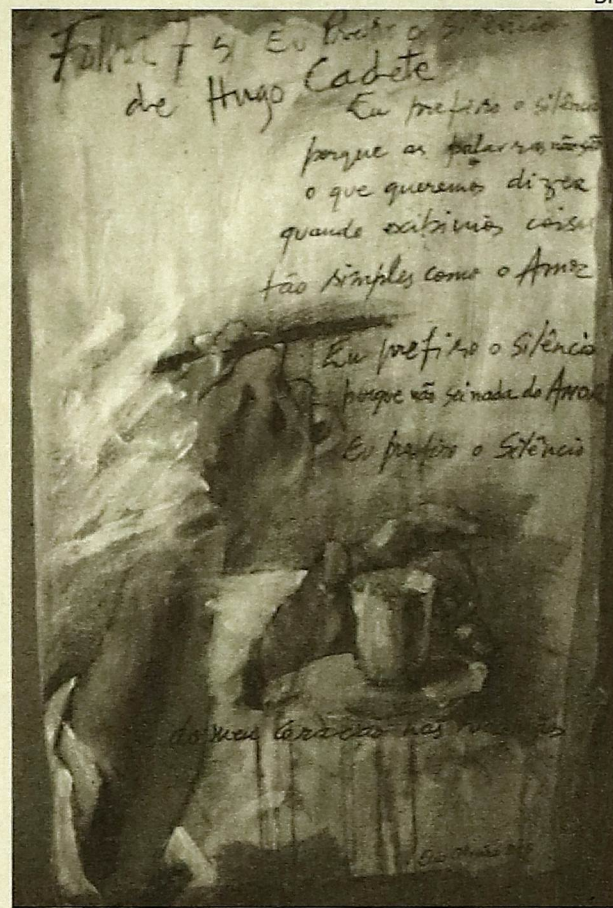 Eu Prefiro o Silêncio
de Hugo Cadete
Eu prefiro o silêncio
porque as palavras não são
o que queremos dizer
quando exibimos coisas
tão simples como o Amor
Eu prefiro o Silêncio
porque não sei nada do Amor
Eu prefiro o Silêncio
do meu coração nas